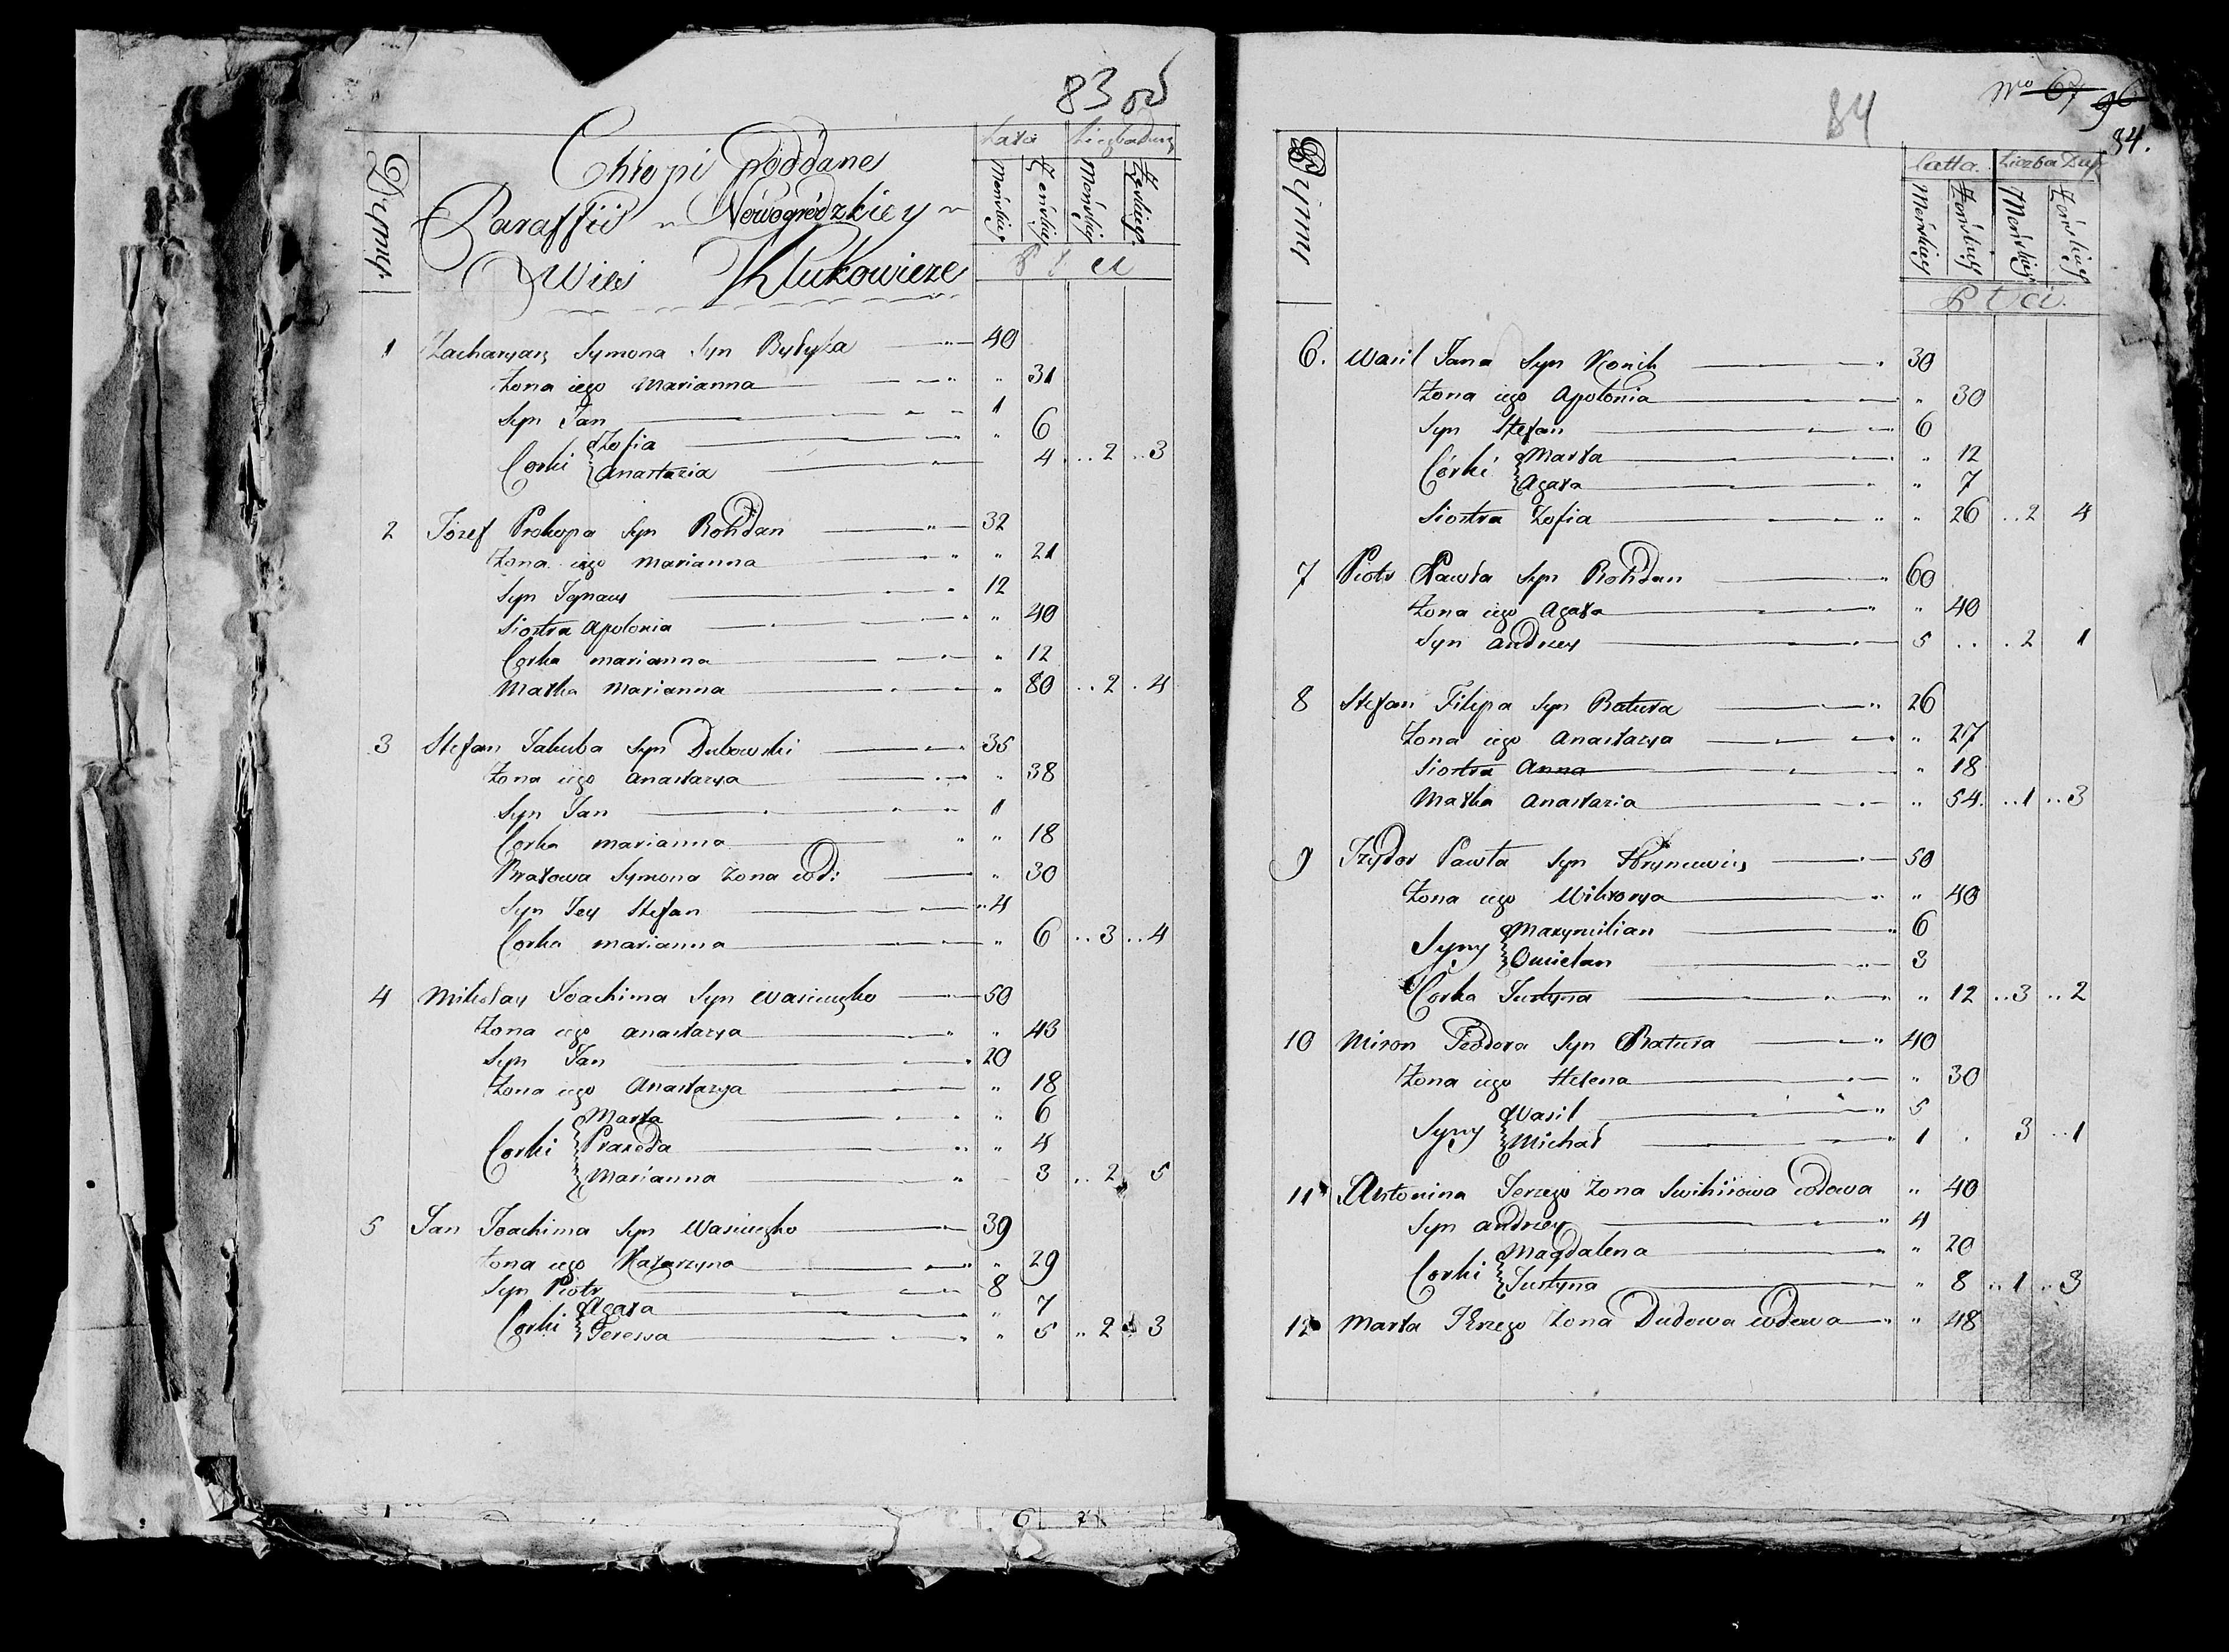 83 od
Dymy
Chłopi Poddane
Paraffii Nowogródzkiey
Wieś Klukowicze
Lata Liczba Dusz
Męskiey Żeńskiey Męskiey Żeńskiey
Płci
1 Zacharyasz Symona Syn Bułyka 40
Żona iego Marianna " 31
Syn Jan 1
Corki Zofia " 6
Anastazia 4 .. 2 .. 3
2 Józef Prokopa Syn Bohdan 32
Żona iego Marianna " 21
Syn Ignacy 12
Siostra Apolonia " 40
Corka Marianna " 12
Matka Marianna " 80 .. 2 . 4
3 Stefan Jakuba Syn Dubowski 35
Żona iego Anastazya " 38
Syn Jan 1
Corka Marianna " 18
Bratowa Symona Żona wd: " 30
Syn Jey Stefan " 4
Corka Marianna " 6 .. 3 .. 4
4 Mikołay Joachima Syn Wasiuczko 50
Żona iego Anastazya " 43
Syn Jan 20
Żona iego Anastazya " 18
Marta " 6
Corki Praxeda " 4
Marianna 3 .. 2 5
5 Jan Joachima Syn Wasiuczko 39
Żona iego Katarzyna " 29
Syn Piotr 8
Corki Agata " 7
Teressa " 5 .. 2 .. 3
84
No 67 96
84.
Dymy
Latta. Liczba Dusz
Męskiey Żeńskiey Męskiey Żeńskiey
Płci.
6. Wasil Jana Syn Konik 30
Żona iego Apolonia " 30
Syn Stefan 6
Córki Marta " 12
Agata " 7
Siostra Zofia " 26 .. 2 4
7 Piotr Pawła Syn Bohdan 60
Żona iego Agata " 40
Syn Andrzey 5 .. . 2 1
8 Stefan Filipa Syn Batura 26
Żona iego Anastazya " 27
Siostra Anna " 18
Matka Anastazia " 54. .. 1 .. 3
9 Izydor Pawła Syn Hryniewicz 50
Żona iego Wiktorya " 40
Syny Maxymilian 6
3
Corka Justyna " 12 .. 3 .. 2
10 Miron Teodora Syn Batura 40
Żona iego Helena " 30
Syny Wasil 5
Michał 1 . 3 .. 1
11 Antonina Jerzego Żona Swihirowa wdowa " 40
Syn Andrzey 4
Corki Magdalena " 20
Justyna " 8 .. 1 .. 3
12 Marta Żona Dudowa wdowa " 48